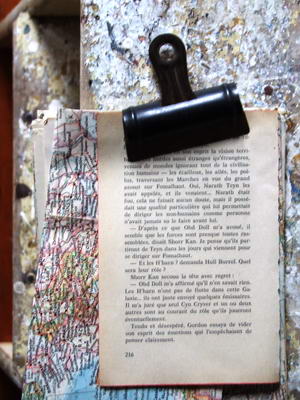 son esprit la vision terri-
hordes aussi étranges qu'étrangères,
venues de mondes ignorant tout de la civilisa-
tion humaine — les écailleux, les ailés, les poi-
lus, traversant les Marches en vue du grand
assaut sur Fomalhaut. Oui, Narath Teyn les
avait appelés, et ils venaient... Narath était
fou, cela ne faisait aucun doute, mais il possé-
dait une qualité particulière qui lui permettait
de diriger les non-humains comme personne
n'avait jamais su le faire avant lui.
— D'après ce que Obd Doll m'a avoué, il
semble que les forces sont presque toutes ras-
semblées, disait Shorr Kan. Je pense qu'ils par-
tiront de Teyn dans les jours qui viennent pour
se diriger sur Fomalhaut.
— Et les H'harn ? demanda Hull Burrel. Quel
sera leur rôle ?
Shorr Kan secoua la tête avec regret :
— Obd Doll m'a affirmé qu'il n'en savait rien.
Les H'harn n'ont pas de flotte dans cette Ga-
laxie... ils ont juste envoyé quelques émissaires.
Il m'a juré que seul Cyn Cryver et un ou deux
autres sont au courant du rôle qu'ils joueront
éventuellement.
Tendu et désespéré, Gordon essaya de vider
son esprit des émotions qui l'empêchaient de
penser clairement.
216